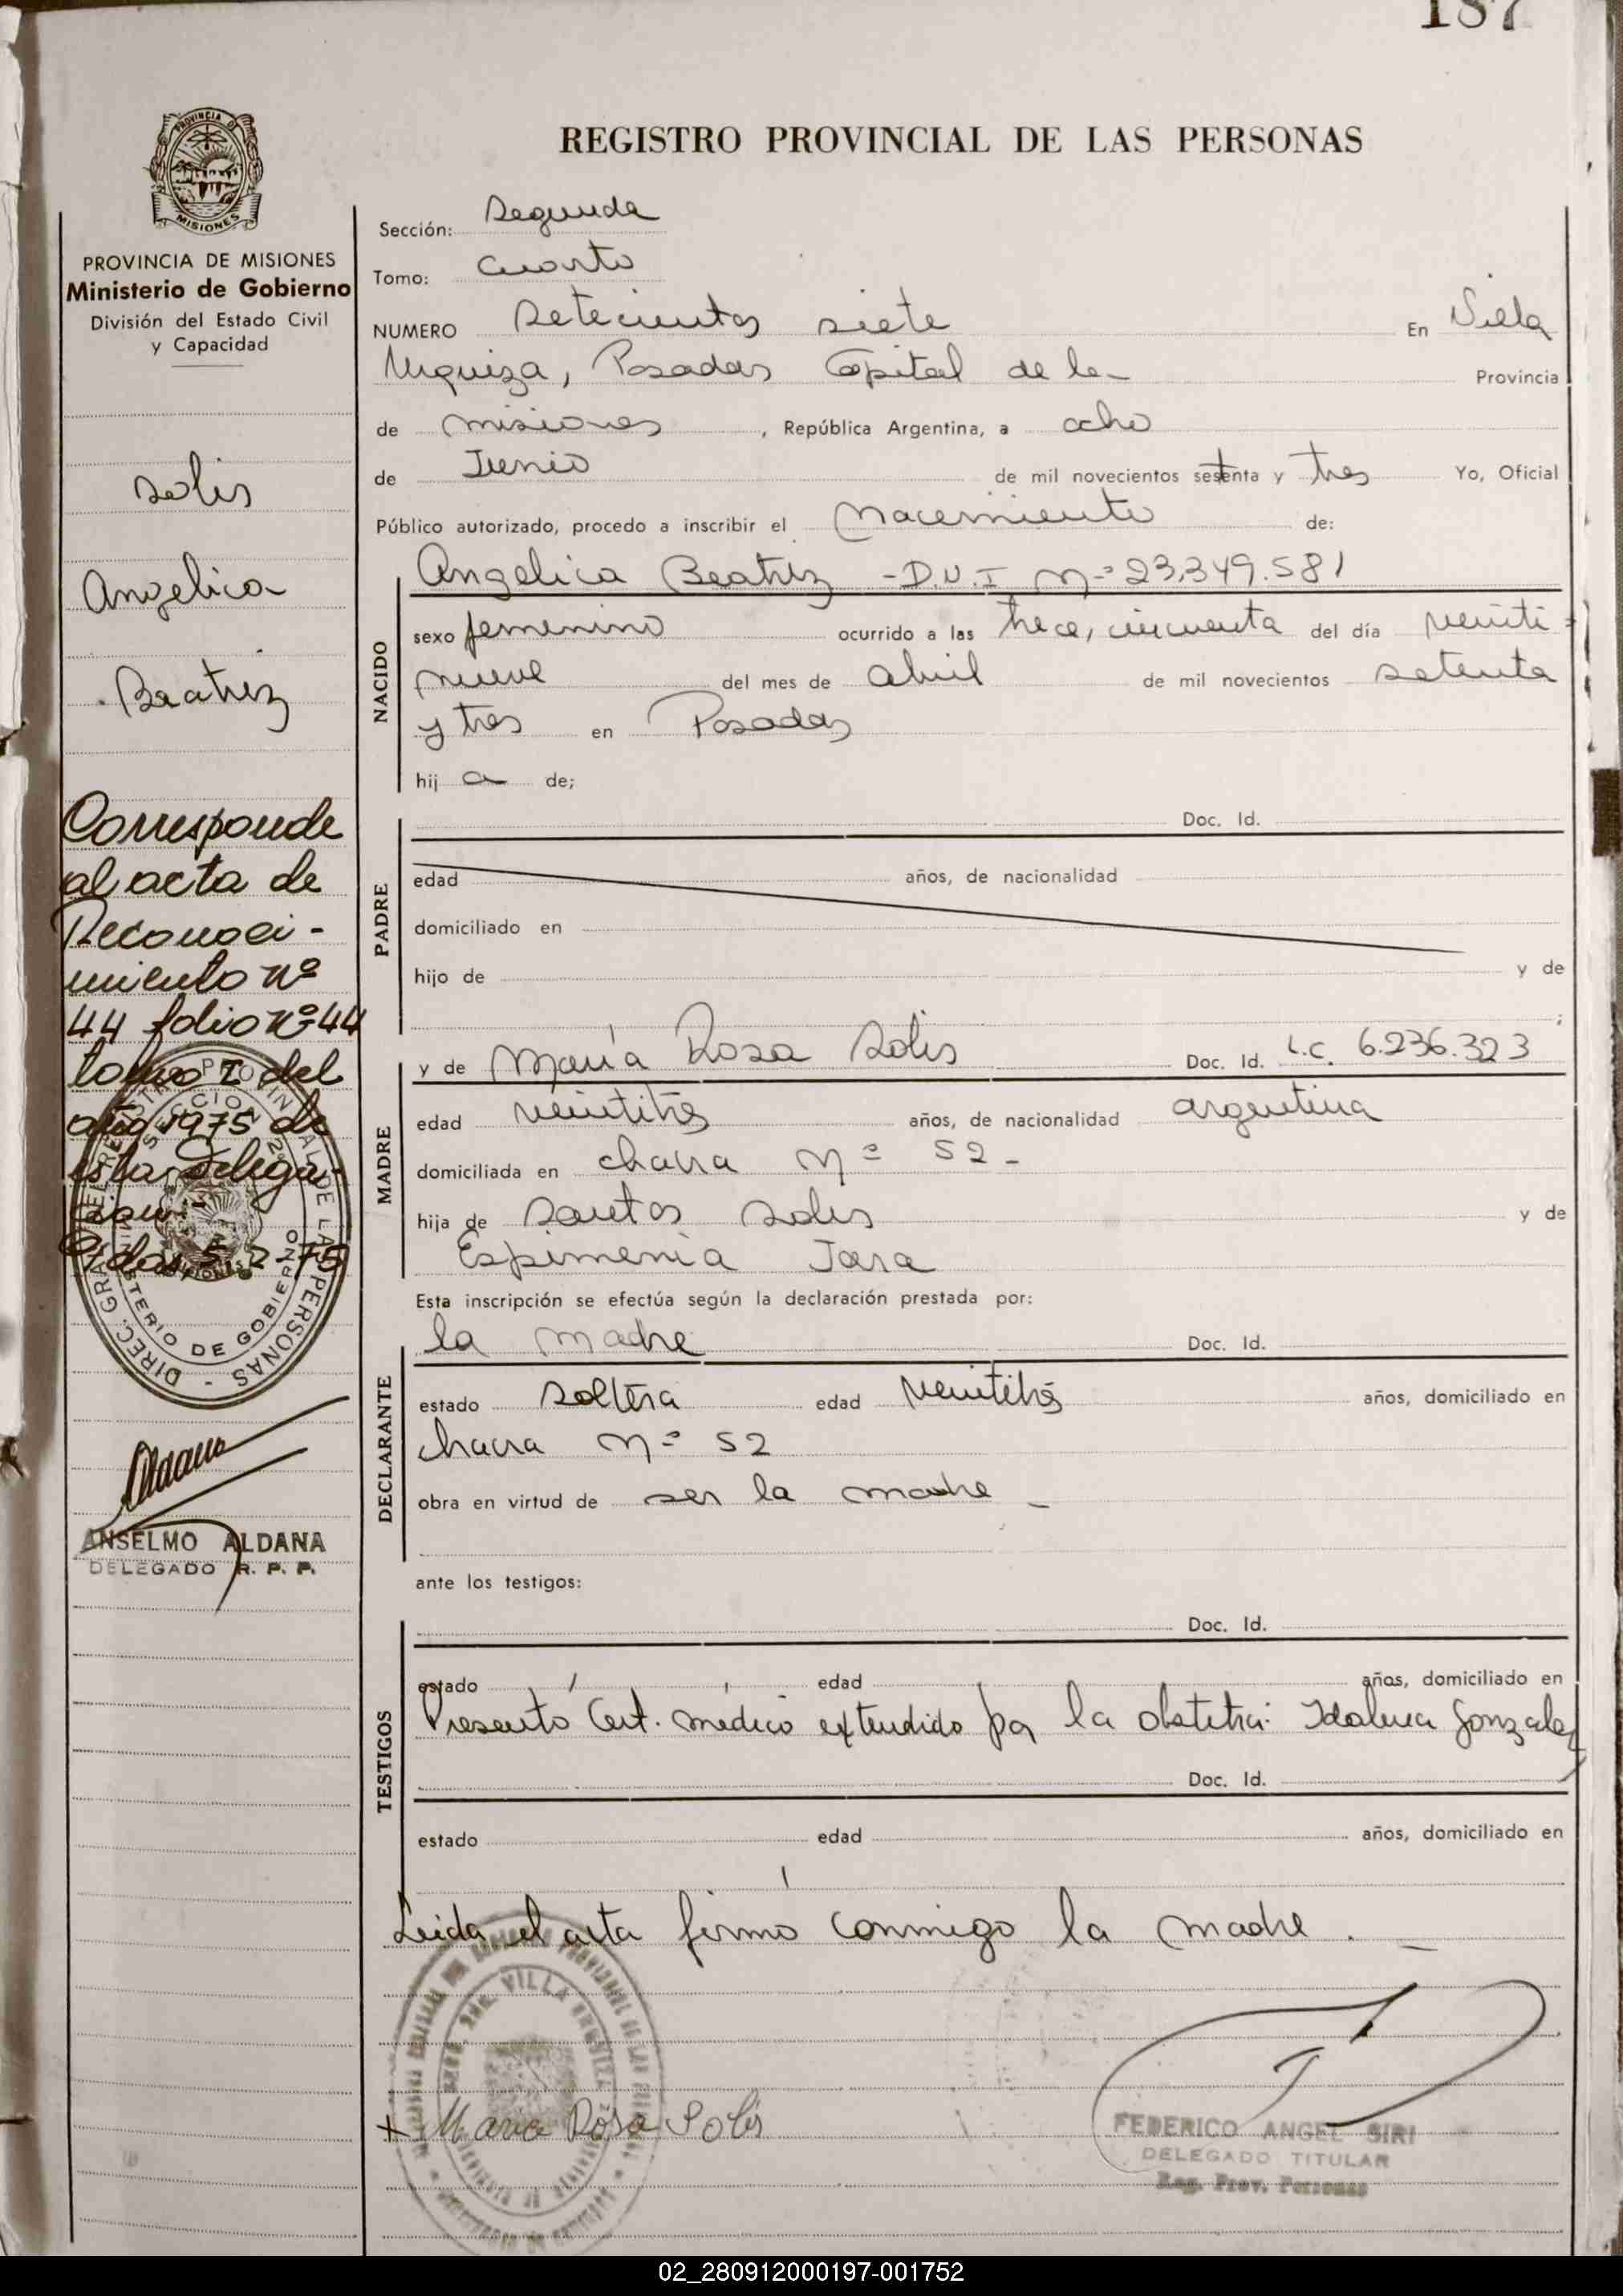 187
REGISTRO PROVINCIAL DE LAS PERSONAS
PROVINCIA DE
MISIONES
PROVINCIA DE MISIONES
Ministerio de Gobierno
División del Estado Civil
y Capacidad
Solis
Angelica
Beatriz
Corresponde
al acta de
Reconoci-
miento nº
44 folio nº 44
tomo I del
año 1975 de
esta Delega-
cion.-
Pdas, 5-2-75
DIREC. GRAL. DEL REGISTRO PROVINCIAL DE LAS PERSONAS -
SECCION 2º
MINISTERIO DE GOBIERNO
ANSELMO ALDANA
DELEGADO R. P. P.
Sección: Segunda
Tomo: Cuarto
NUMERO Setecientos siete En Villa
Urquiza, Posadas Capital de la Provincia
de Misiones, República Argentina, a ocho
de Junio de mil novecientos setenta y tres Yo, Oficial
Público autorizado, procedo a inscribir el Nacimiento de:
NACIDO
Angelica Beatriz - D.N.I Nº 23.349.581
sexo femenino ocurrido a las trece, cincuenta del día veinti=
nueve del mes de abril de mil novecientos setenta
y tres en Posadas
hij a de;
PADRE
Doc. Id.
edad años, de nacionalidad
domiciliado en
hijo de y de
;
MADRE
y de María Rosa Solis Doc. Id. L.C. 6.236.323
edad veintitrés años, de nacionalidad argentina
domiciliada en chacra Nº 52-
hija de Santos Solis y de
Espimenia Jara
Esta inscripción se efectúa según la declaración prestada por:
DECLARANTE
la madre Doc. Id.
estado soltera edad veintitrés años, domiciliado en
chacra Nº 52
obra en virtud de ser la madre -
ante los testigos:
TESTIGOS
Doc. Id.
estado edad años, domiciliado en
Presentó Cert. médico extendido por la obstetra: Idalina Gonzalez
Doc. Id.
estado edad años, domiciliado en
Leida el acta firmó conmigo la madre. -
VILLA URQUIZA
+ Maria Rosa Solis
FEDERICO ANGEL SIRI
DELEGADO TITULAR
Reg. Prov. Personas
02_280912000197-001752